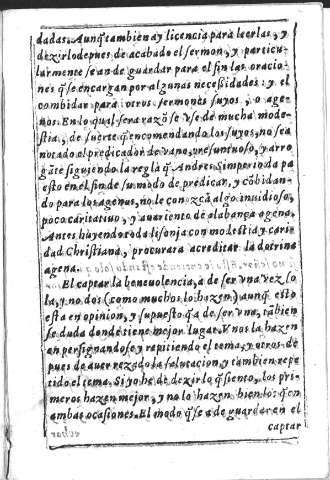 dadas. Aunq̃ tambien ay licencia para leerlas, y
dezirlo depues de acabado el sermon, y particu-
larmente sean de guardar para el fin las oracio-
nes q̃ se encargan por algunas necessidades: y el
combidar para otros sermones suyos, o age-
nos. En lo qual sera razõ se vse de mucha mode-
stia, de suerte q̃ encomendando los suyos, no sea
notado el predicador de vano, presuntuoso, y arro
gãte siguiendo la regla q̃ Andres Simperio da pa
esto en el fin de su modo de predicar, y cõbidan-
do para los agenos, no le conozcã algo insidioso,
poco caritatiuo, y auariento de alabança agena.
Antes huyendo toda lisonja con modestia y cari-
dad Christiana, procurara acreditar la dotrina
agena.
El captar la beneuolencia, a de ser vna vez so
la, y no dos (como muchos lo hazen) aunq̃ esto
esta en opinion, y supuesto q̃ a de ser vna, tãbien
se duda donde tiene mejor lugar. Vnos la hazen
en persignandose y repitiendo el tema, y otros de
pues de auer rezado la salutacion, y tambien repe
tido el tema. Si yo he de dezir lo q̃ siento, los pri-
meros hazen mejor, y no lo hazen bien los q̃ en
ambas ocasiones. El modo q̃ se a de guardar en el
captar